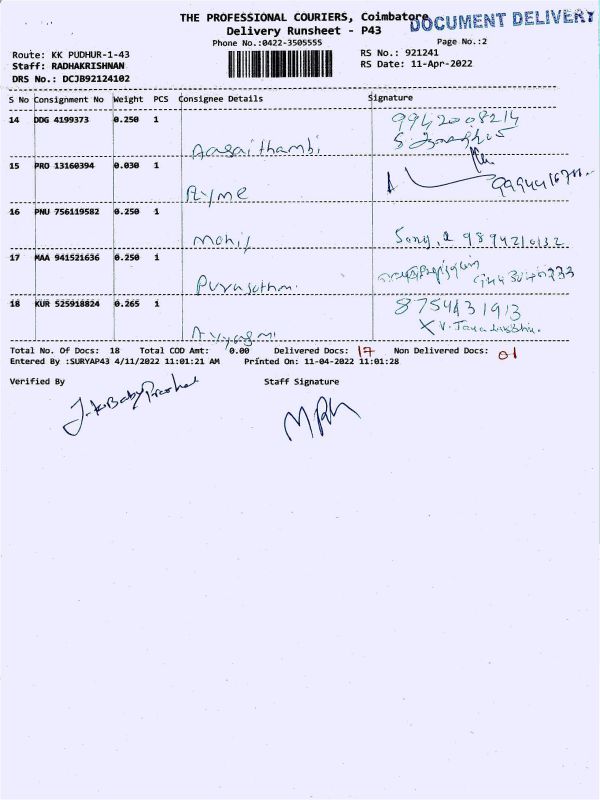 THE PROFESSIONAL COURIERS, Coimbatore
DOCUMENT DELIVERY
Delivery Runsheet - P43
Phone No.:0422-3505555
Page No.:2
Route: KK PUDHUR-1-43
RS No.: 921241
Staff: RADHAKRISHNAN
RS Date: 11-Apr-2022
DRS No.: DCJB92124102
S No Consignment No Weight PCS Consignee Details Signature
14 DDG 4199373 0.250 1
9942008214
Aasaithambi
15 PRO 13160394 0.030 1
Ryme
16 PNU 756119582 0.250 1
Mohij
17 MAA 941521636 0.250 1
18 KUR 525918824 0.265 1
8754431913
Total No. Of Docs: 18 Total COD Amt: 0.00 Delivered Docs: 17 Non Delivered Docs: 01
Entered By :SURYAP43 4/11/2022 11:01:21 AM Printed On: 11-04-2022 11:01:28
Verified By Staff Signature